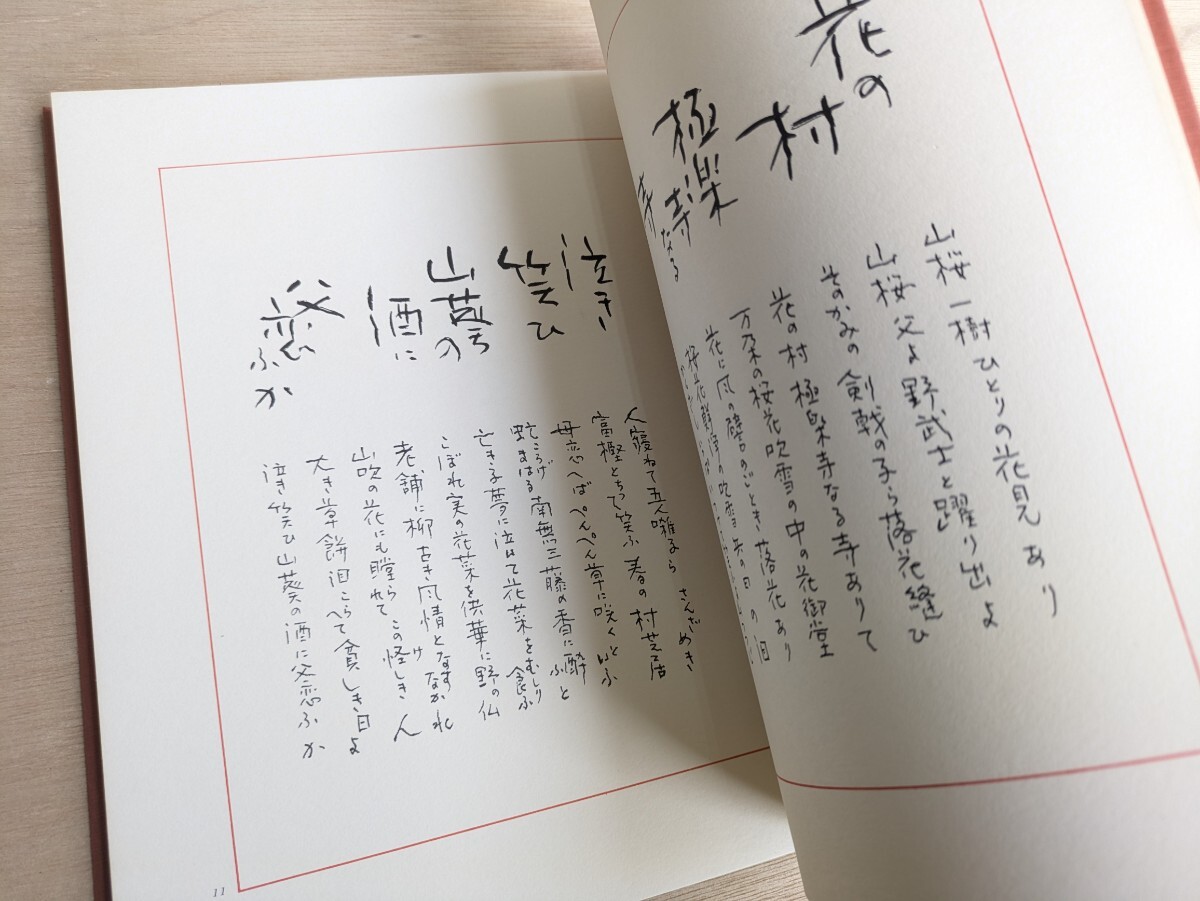 花の
村
極楽
寺
寺
なる
山桜一樹ひとりの花見あり
山桜父よ野武士と躍り出よ
そのかみの剣戟の子ら落花縫ひ
花の村極楽寺なる寺ありて
万朶の桜花吹雪の中の花御堂
花に風の礫のごとき落花あり
桜花
の吹雪
の日の
泣き
笑ひ
山葵の
酒に
父
恋
ふか
人寝ねて五人囃るらさんざめき
富樫とちつて笑ふ春の村芝居
母恋へばぺんぺん草に咲くと
ころげまはる南無三藤の香に酔ふと
亡き子夢に泣けて花菜をむしり食ふ
こぼれ実の花菜を供華に野の仏
老舗に柳古き風情となすなかれ
山吹の花にも瞠られてこの怪しき人
大き草餅泪こらへて貧しき日よ
泣き笑ひ山葵の酒に父恋ふか
11